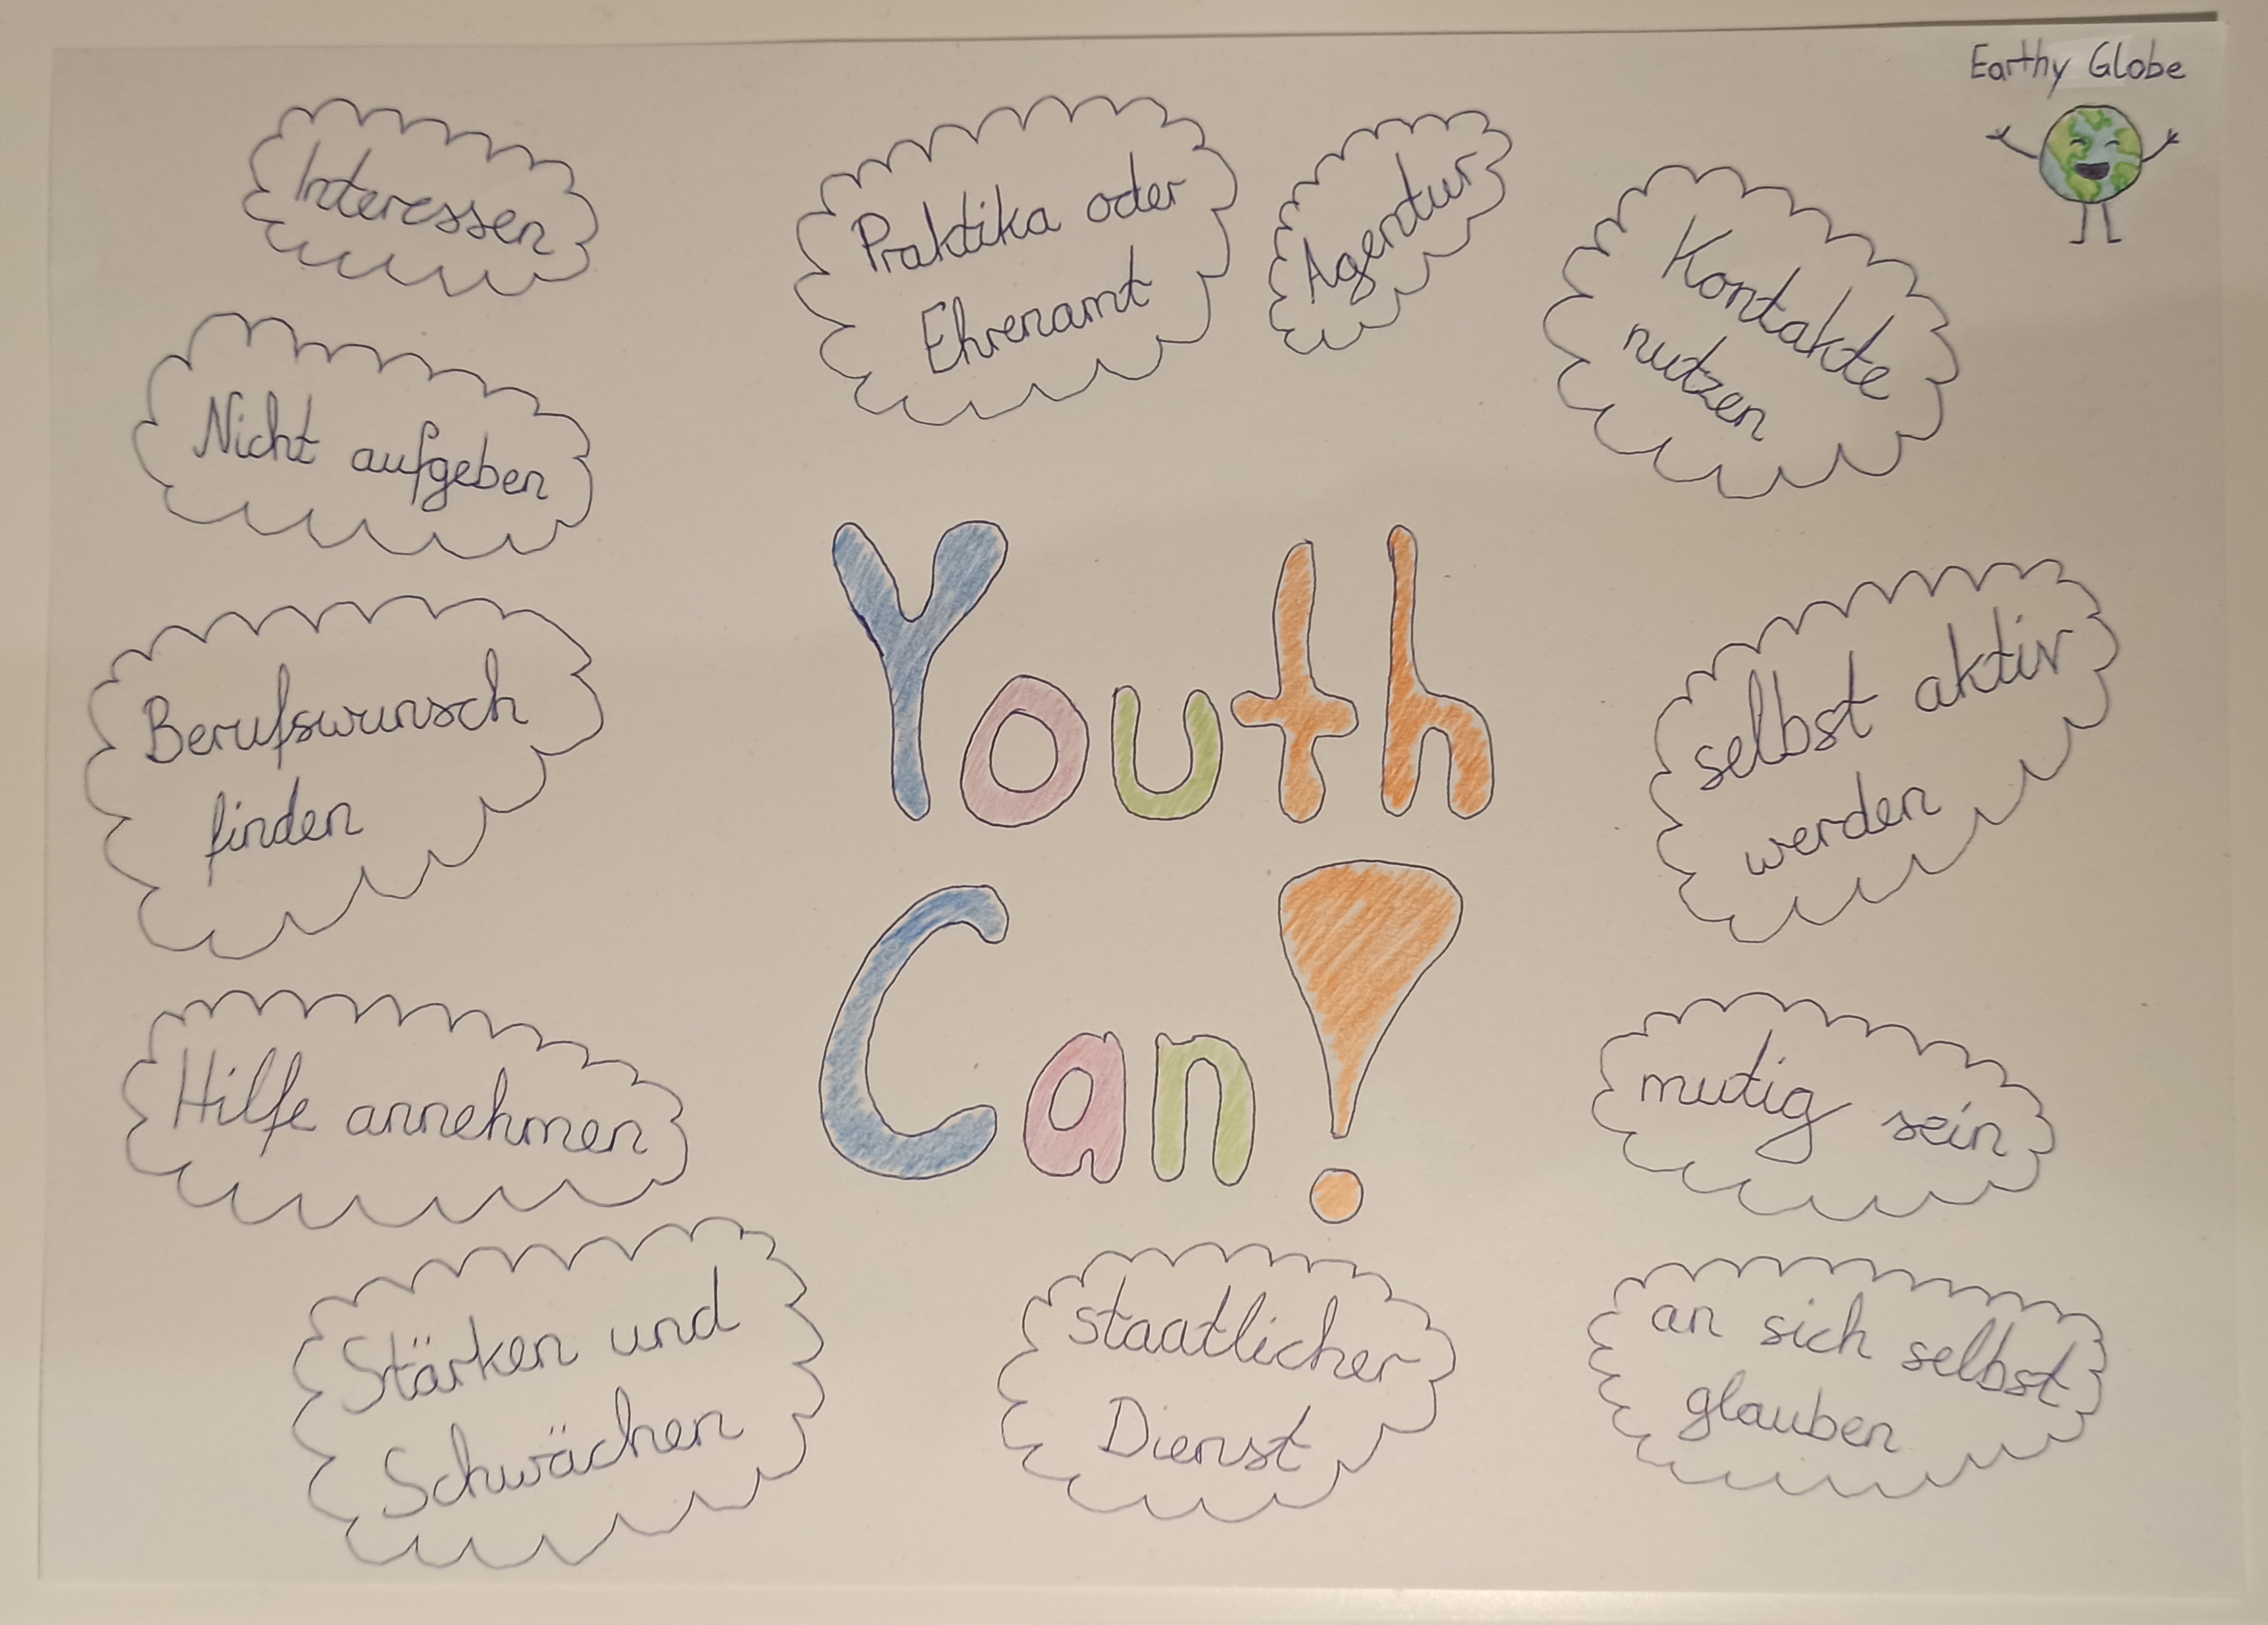 Earthy Globe
Interessen
Praktika oder
Ehrenamt
Agentur
Kontakte
nutzen
Nicht aufgeben
Youth
Can!
Berufswunsch
finden
selbst aktiv
werden
Hilfe annehmen
mutig sein
Stärken und
Schwächen
staatlicher
Dienst
an sich selbst
glauben